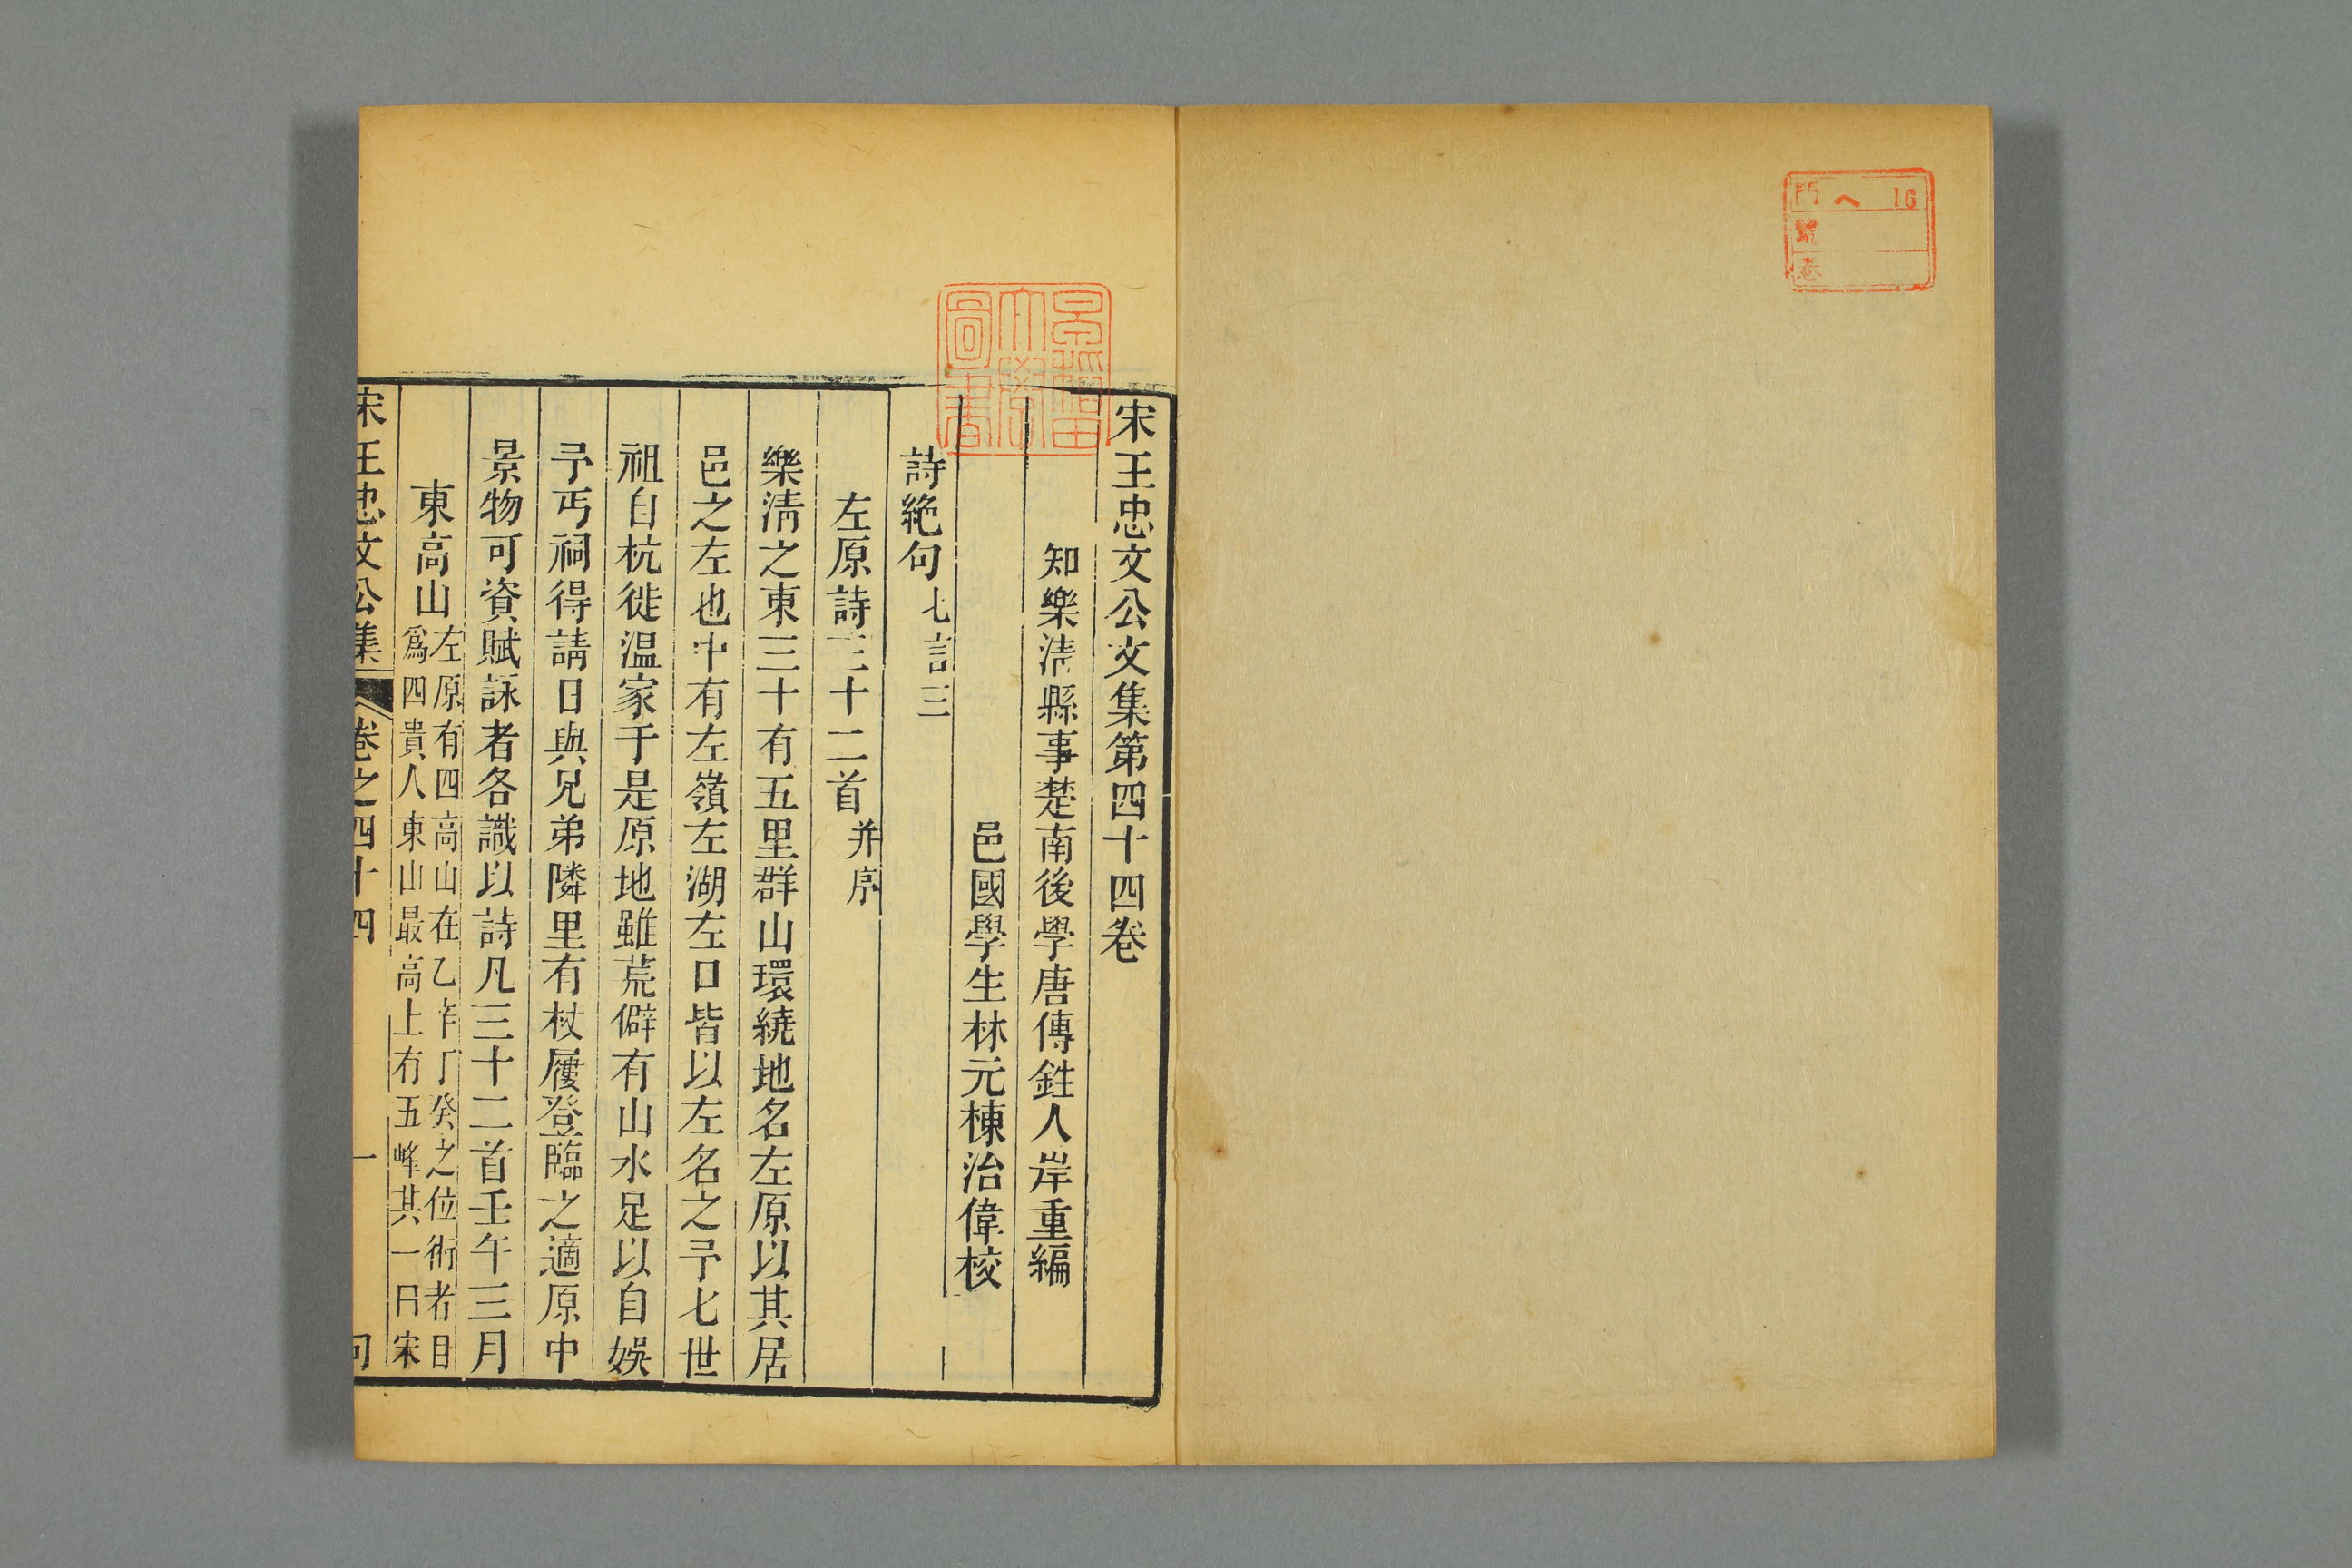 門 ヘ 16
號
卷
宋王忠文公文集第四十四卷
知樂清縣事楚南後學唐傳鉎人岸重編
邑國學生林元棟治偉校
詩絶句七言三
左原詩三十二首并序
樂清之東三十有五里群山環繞地名左原以其居
邑之左也中有左嶺左湖左口皆以左名之予七世
祖自杭徙温家于是原地雖荒僻有山水足以自娛
予丐祠得請日與兄弟隣里有杖屨登臨之適原中
景物可資賦詠者各識以詩凡三十二首壬午三月
東高山左原有四高山在乙辛丁癸之位術者目
爲四貴人東山最高上有五峰其一曰宋
宋王忠文公集 卷之四十四 一
早稻田大學圖書